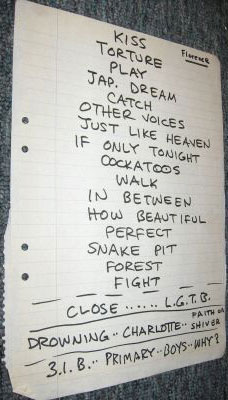 KISS
TORTURE
PLAY
JAP. DREAM
CATCH
OTHER VOICES
JUST LIKE HEAVEN
IF ONLY TONIGHT
COCKATOOS
WALK
IN BETWEEN
HOW BEAUTIFUL
PERFECT
SNAKE PIT
FOREST
FIGHT
CLOSE ...... L.G.T.B.
DROWNING .. CHARLOTTE .. FAITH OR SHIVER
3.I.B. .. PRIMARY .. BOYS .. WHY?